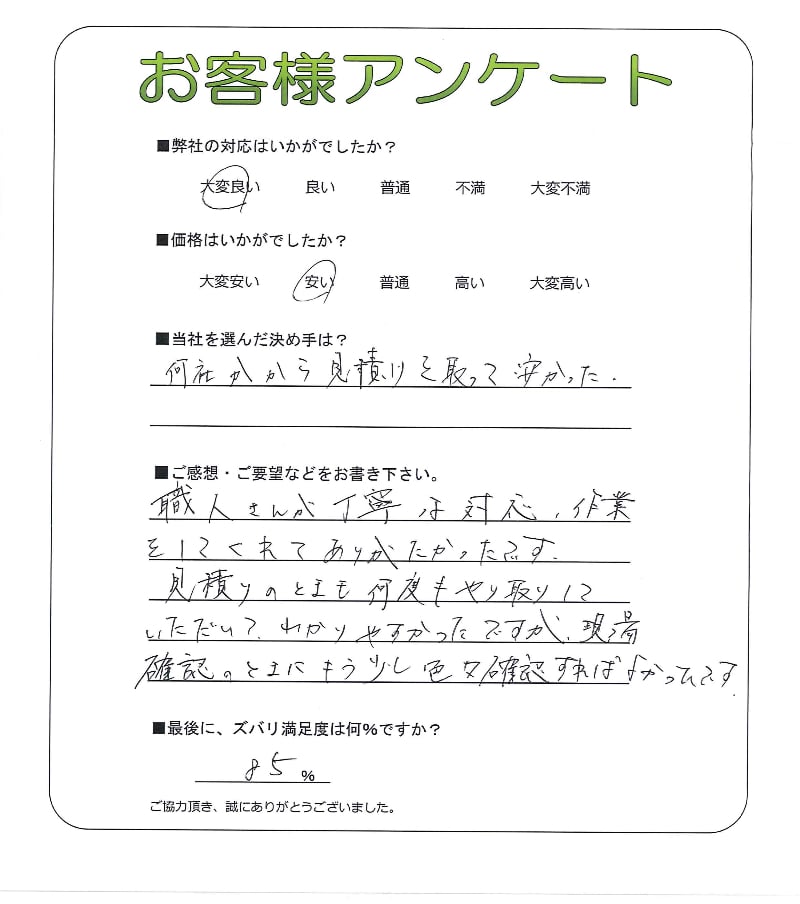 お客様アンケート
■弊社の対応はいかがでしたか？
大変良い 良い 普通 不満 大変不満
■価格はいかがでしたか？
大変安い 安い 普通 高い 大変高い
■当社を選んだ決め手は？
何社かから見積りを取って安かった.
■ご感想・ご要望などをお書き下さい。
職人さんが丁寧な対応、作業
をしてくれてありがたかったです.
見積りのときも何度もやり取りして
いただいて、わかりやすかったですが、現場
確認のときにもう少し色々確認すればよかったです.
■最後に、ズバリ満足度は何％ですか？
85％
ご協力頂き、誠にありがとうございました。